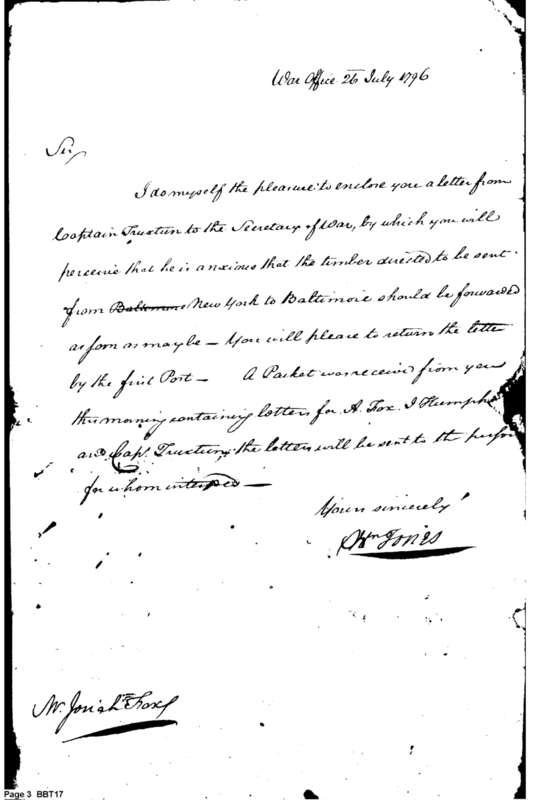 War Office 26 July 1796
Sir
I do myself the pleasure to enclose you a letter from
Captain Truxtun to the Secretary of War, by which you will
perceive that he is anxious that the timber directed to be sent
from Baltimore New York to Baltimore should be forwarded
as soon as may be — You will please to return the letter
by the first Post — A Packet was received from you
this morning containing letters for A. Fox. J Humph
and Cap. Truxtun, the letters will be sent to the person
for whom intended —
Yours sincerely
Wm Jones
Mr. Josiah Fox
Page 3 BBT17